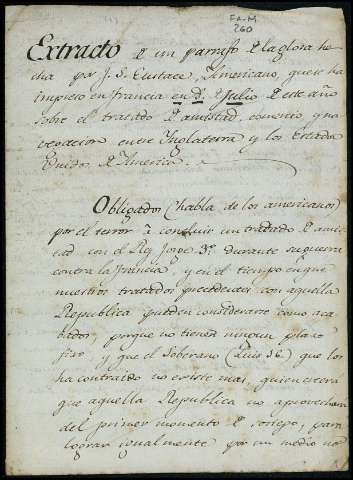 FA-M
260
Extracto de un parrafo de la glosa he
cha por J. S. Eustace, Americano, que se ha
impreso en Francia en de Julio de este año
sobre el tratado de amistad, comercio, y na
vegacion entre Inglaterra y los Estados
Unidos de America.
Obligados (habla de los americanos)
por el terror à concluir un tratado de amis
tad con el Rey Jorge 3º durante su guerra
contra la Francia, y en el tiempo en que
nuestros tratados precedentes con aquella
Republica pueden considerarse como aca
bados, porque no tienen ningun plazo
fixo y que el Soberano (Luis 16) que los
ha contraido no existe mas, quien creera
que aquella Republica no aprovechara
del primer momento de sosiego, para
lograr igualmente por un medio no